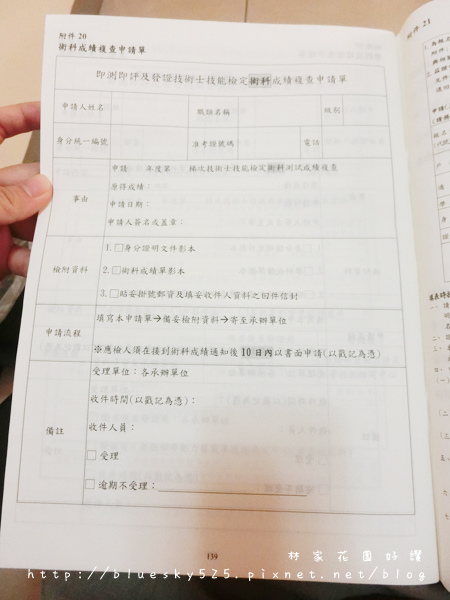 附件 20
術科成績複查申請單
即測即評及發證技術士技能檢定術科成績複查申請單
申請人姓名 職類名稱 級別
身分統一編號 准考證號碼 電話
事由
申請 年度第 梯次技術士技能檢定術科測試成績複查
原得成績：
申請日期：
申請人簽名或蓋章：
檢附資料
1.□身分證明文件影本
2.□術科成績單影本
3.□貼妥掛號郵資及填妥收件人資料之回件信封
申請流程
填寫本申請單→備妥檢附資料→寄至承辦單位
※應檢人須在接到術科成績通知後 10 日內以書面申請(以戳記為憑)
備註
受理單位：各承辦單位
收件時間(以戳記為憑)：
收件人員：
□ 受理
□ 逾期不受理：
139
附件 21
林家花園好讚
http://bluesky525.pixnet.net/blog